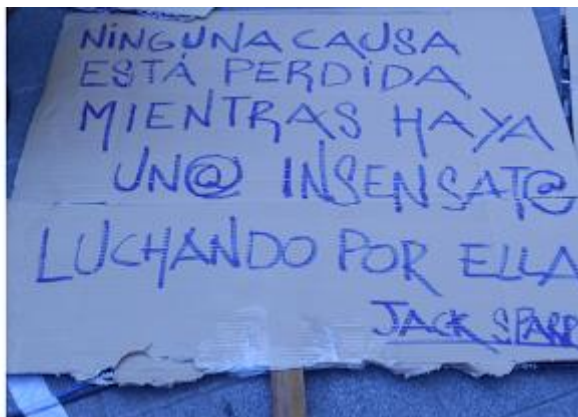 NINGUNA CAUSA
ESTÁ PERDIDA
MIENTRAS HAYA
UN@ INSENSAT@
LUCHANDO POR ELLA
JACK